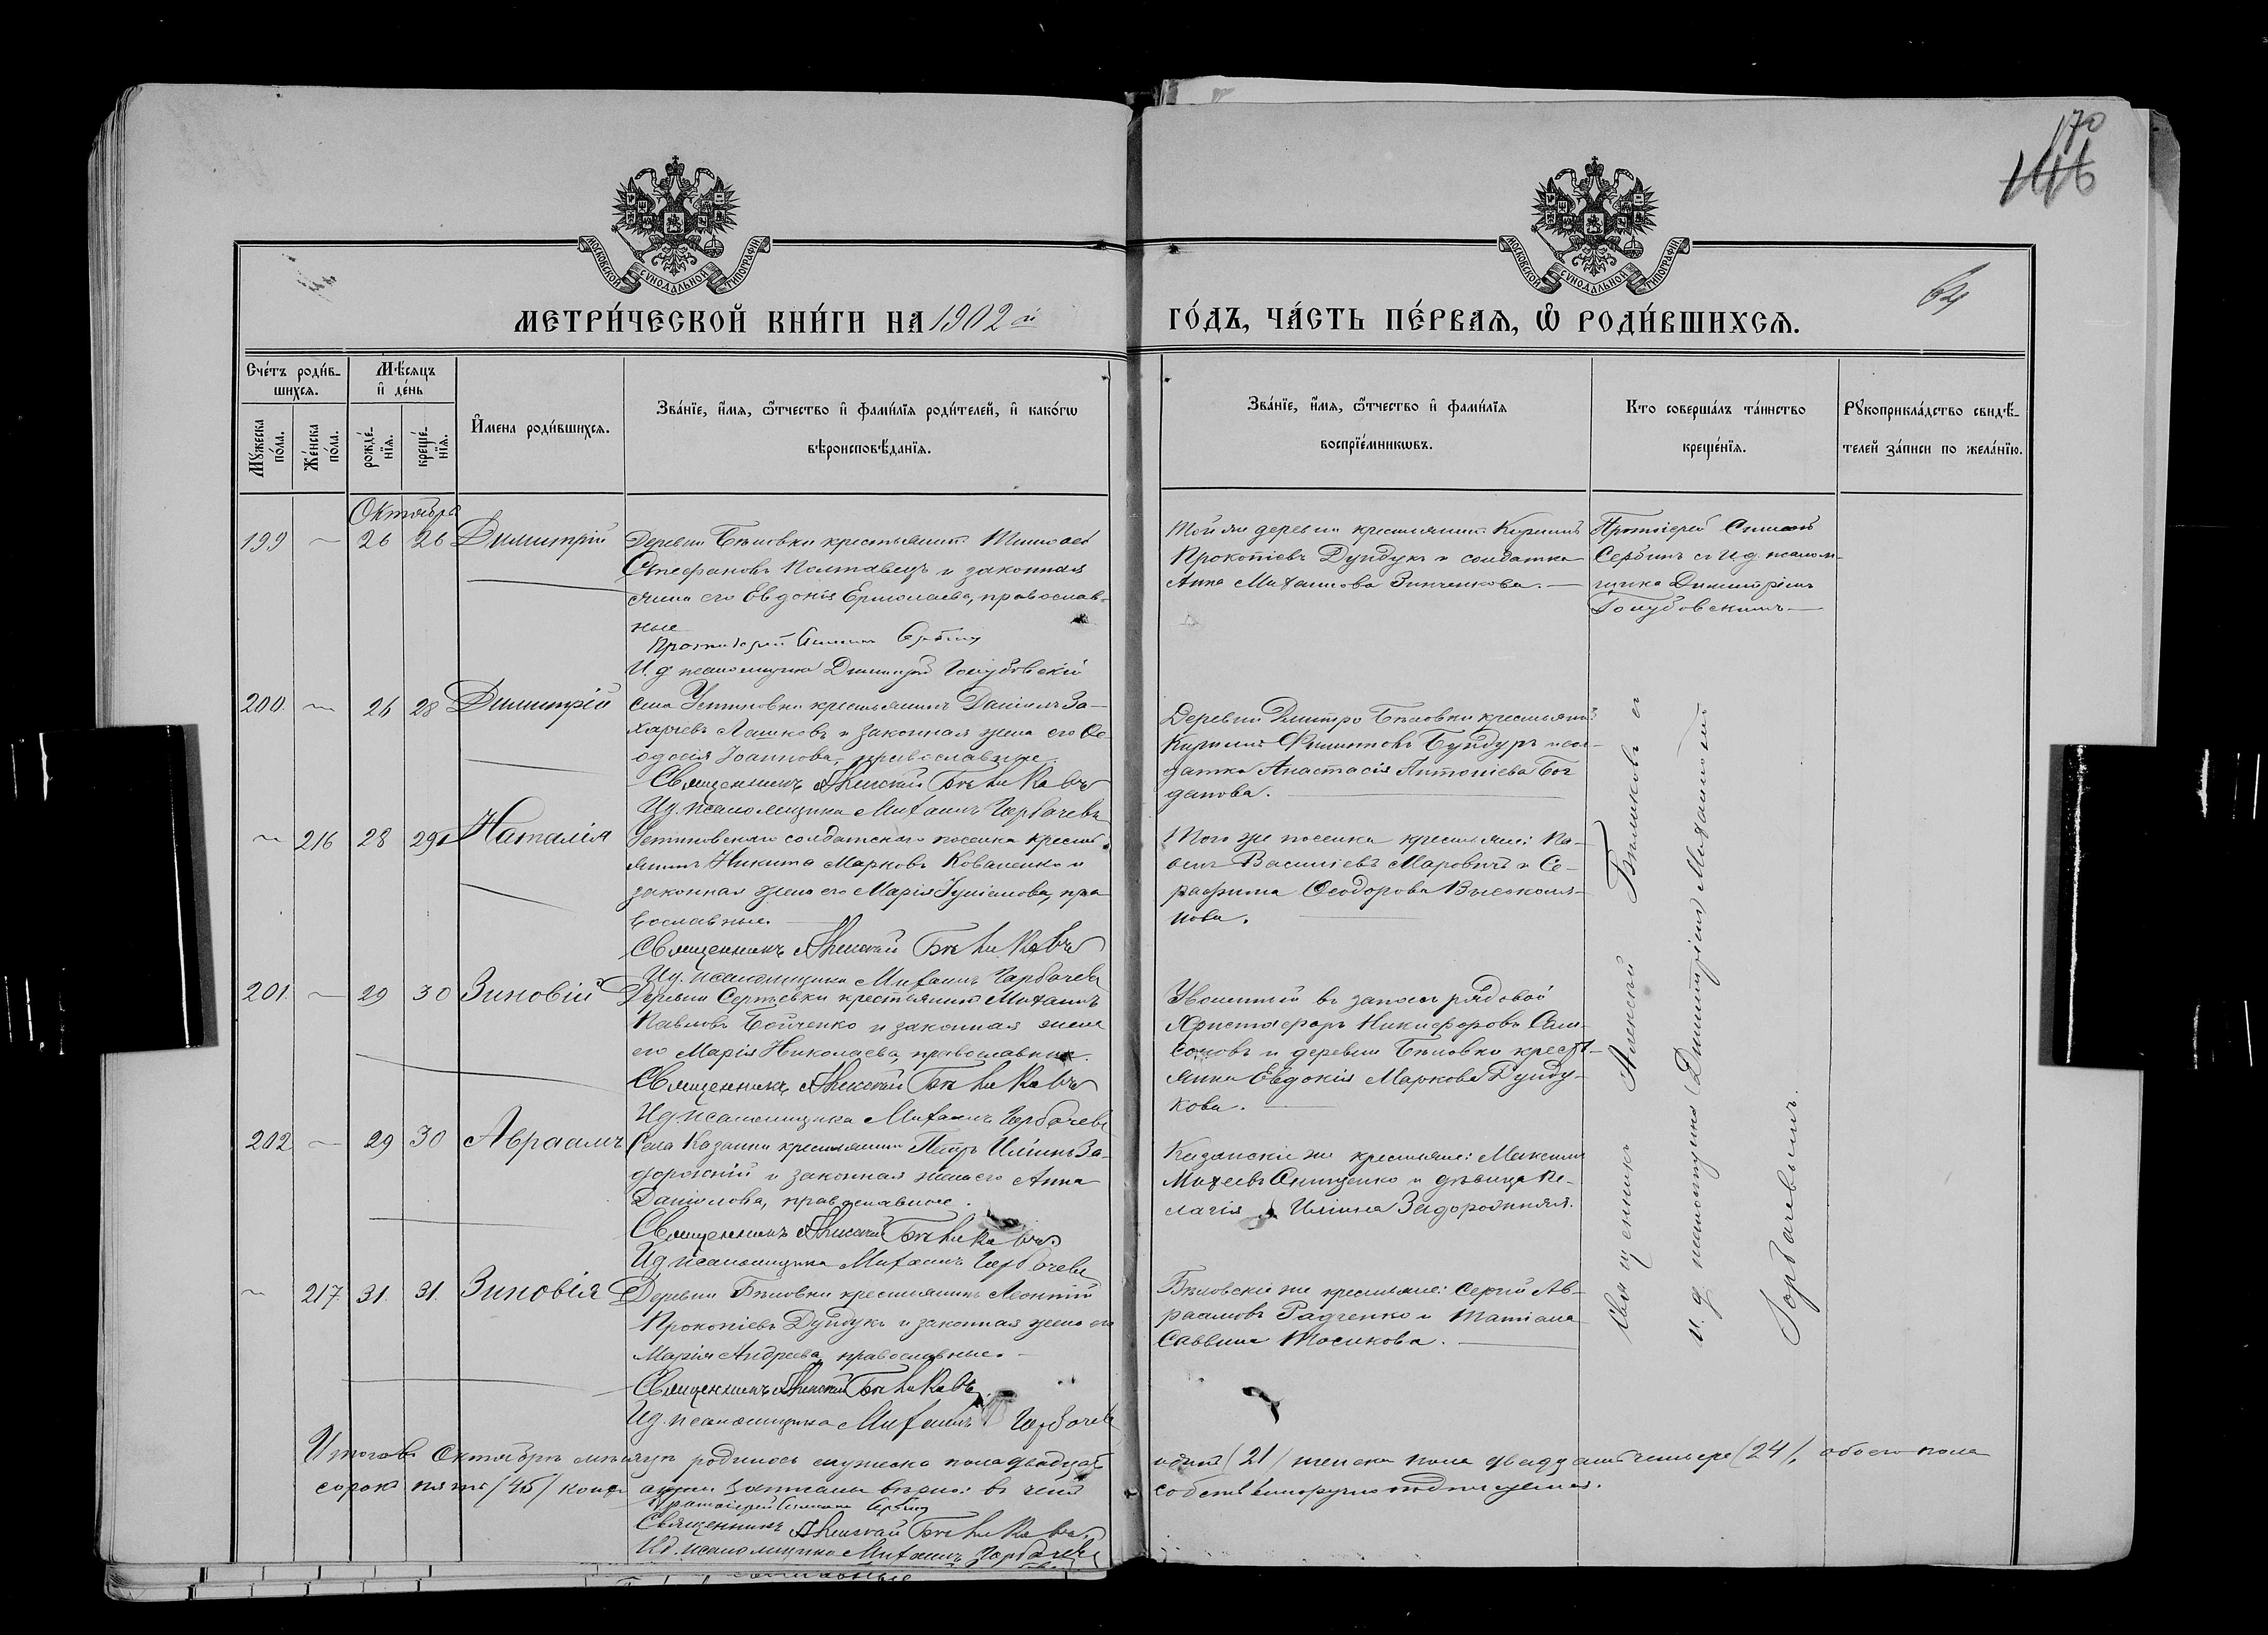 170
146
64
МОСКОВСКОЙ СУНОДАЛЬНОЙ ТИПОГРАФІИ
МОСКОВСКОЙ СУНОДАЛЬНОЙ ТИПОГРАФІИ
МЕТРИ́ЧЕСКОЙ КНИ́ГИ НА 1902й
ГО́ДЪ, ЧА́СТЬ ПЕ́РВАѦ, Ѡ҆ РОДИ́ВШИХСѦ.
Сче́тъ роди́в-
шихсѧ.
Мꙋ́жеска
по́ла.
Же́нска
по́ла.
Мѣ́сѧцъ
и҆ де́нь
рожде́-
нїѧ.
креще́-
нїѧ.
И҆́мена роди́вшихсѧ.
Зва́нїе, и҆́мѧ, ѻ҆́тчество и҆ фами́лїѧ роди́телей, и҆ како́гѡ
вѣроисповѣ́данїѧ.
Зва́нїе, и҆́мѧ, ѻ҆́тчество и҆ фами́лїѧ
воспрїе́мникѡвъ.
Кто соверша́лъ та́инство
креще́нїѧ.
Рꙋкоприкла́дство свидѣ́-
телей за́писи по жела́нїю.
Октябрь
199 — 26 26 Димитрій
Деревни Бѣловки крестьянинъ
Стефановъ Полтавецъ и законная
жена его Евдокія Ермолаева, православ-
ные
Протоіерей Симеонъ Сербинъ
И. д. псаломщика Димитрій Голубовскій
Той же деревни крестьянинъ Кириллъ
Прокопіевъ Дундукъ и солдатка
Анна Михаилова Зинченкова. —
Протоіерей Симеонъ
Сербинъ съ и. д. псалом-
щика Димитріемъ
Голубовскимъ —
200. — 26 28 Димитрій
Села Устиновки крестьянинъ Даніилъ За-
харіевъ Лашковъ и законная жена его Ѳе-
одосія Іоаннова, православные.
Священникъ Алексій Бѣликовъ
И.д. псаломщика Михаилъ Горбачевъ
Деревни Дмитро Бѣловки крестьянинъ
Кириллъ Филипповъ Бундуръ и сол-
датка Анастасія Антоніева Бог
данова. —
— 216 28 29 Наталія
Устиновскаго солдатскаго поселка кресть-
янинъ Никита Марковъ Коваленко и
законная жена его Марія Іуліанова, пра
вославные. —
Священникъ Алексій Бѣликовъ
И.д. псаломщика Михаилъ Горбачевъ
Того же поселка крестьяне: Па-
велъ Василіевъ Маровичъ и Се-
рафима Ѳеодорова
нова. —
201. — 29 30 Зиновій
Деревни Сергѣевки крестьянинъ Михаилъ
Павловъ Бойченко и законная жена
его Марія Николаева, православные.
Священникъ Алексій Бѣликовъ
И.д. псаломщика Михаилъ Горбачевъ
Уволенный въ запасъ рядовой
Христофоръ Никифоровъ Сам-
соновъ и деревни Бѣловки кресть-
янка Евдокія Маркова Дунду-
кова. —
202 — 29 30 Авраамъ
Села Казанки крестьянинъ Петръ Иліинъ За-
дорожній и законная жена его Анна
Даніилова, православные.
Священникъ Алексій Бѣликовъ.
И.д. псаломщика Михаилъ Горбачевъ
Казанскіе же крестьяне: Максимъ
Михеевъ Онищенко и дѣвица Пе-
лагія Иліина Задорожняя.
— 217. 31. 31. Зиновія
Деревни Бѣловки крестьянинъ Леонтій
Прокопіевъ Дундукъ и законная жена его
Марія Андреева, православные. —
Священникъ Алексій Бѣликовъ.
И.д. псаломщика Михаилъ Горбачевъ
Бѣловскіе же крестьяне: Сергій Ав-
раамовъ Радченко и Татіана
Саввина Мосикова. —
Священникъ Алексій Бѣликовъ съ
и. д. псаломщика Михаиломъ
Горбачевымъ.
Итого въ Октябрѣ мѣсяцѣ родилось мужеска пола двадцать
одинъ (21) женска пола двадцать четыре (24), обоего пола
сорокъ пять (45) записаны вѣрно: въ чемъ
собственноручно подписуемся.
Протоіерей Симеонъ Сербинъ
Священникъ Алексій Бѣликовъ.
И.д. псаломщика Михаилъ Горбачевъ